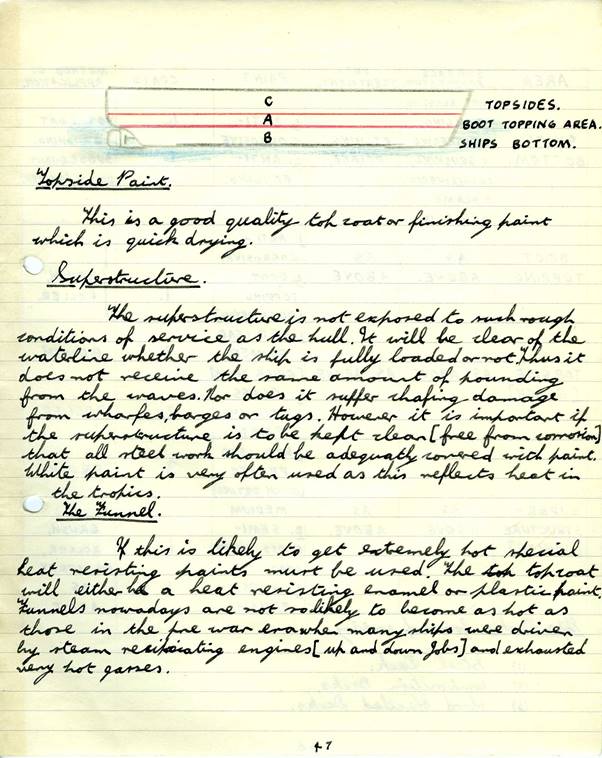 C
A
B
TOPSIDES.
BOOT TOPPING AREA.
SHIPS BOTTOM.
Topside Paint.
This is a good quality top coat or finishing paint
which is quick drying.
Superstructure.
The superstructure is not exposed to such rough
conditions of service as the hull. It will be clear of the
waterline whether the ship is fully loaded or not. Thus it
does not receive the same amount of pounding
from the waves. Nor does it suffer chafing damage
from wharfes, barges or tugs. However it is important if
the superstructure is to be kept clean [free from corrosion]
that all steel work should be adequatly covered with paint.
White paint is very often used as this reflects heat in
the tropics.
The Funnel.
If this is likely to get extemely hot special
heat resisting paints must be used. The top topcoat
will either be a heat resisting enamel or plastic paint,
Funnels nowadays are not so likely to become as hot as
those in the pre war era when many ships were driven
by steam engines [up and down Jobs] and exhausted
very hot gasses.
47